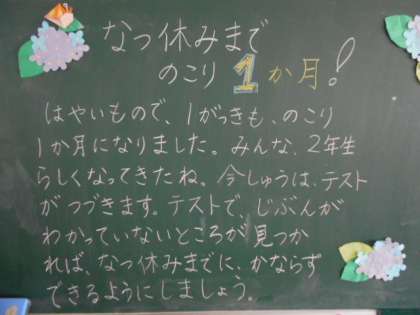 なつ休みまで
のこり1か月!
はやいもので、1がっきも、のこり
1か月になりました。みんな、2年生
らしくなってきたね。今しゅうは、テスト
がつづきます。テストで、じぶんが
わかっていないところが見つか
れば、なつ休みまでに、かならず
できるようにしましょう。